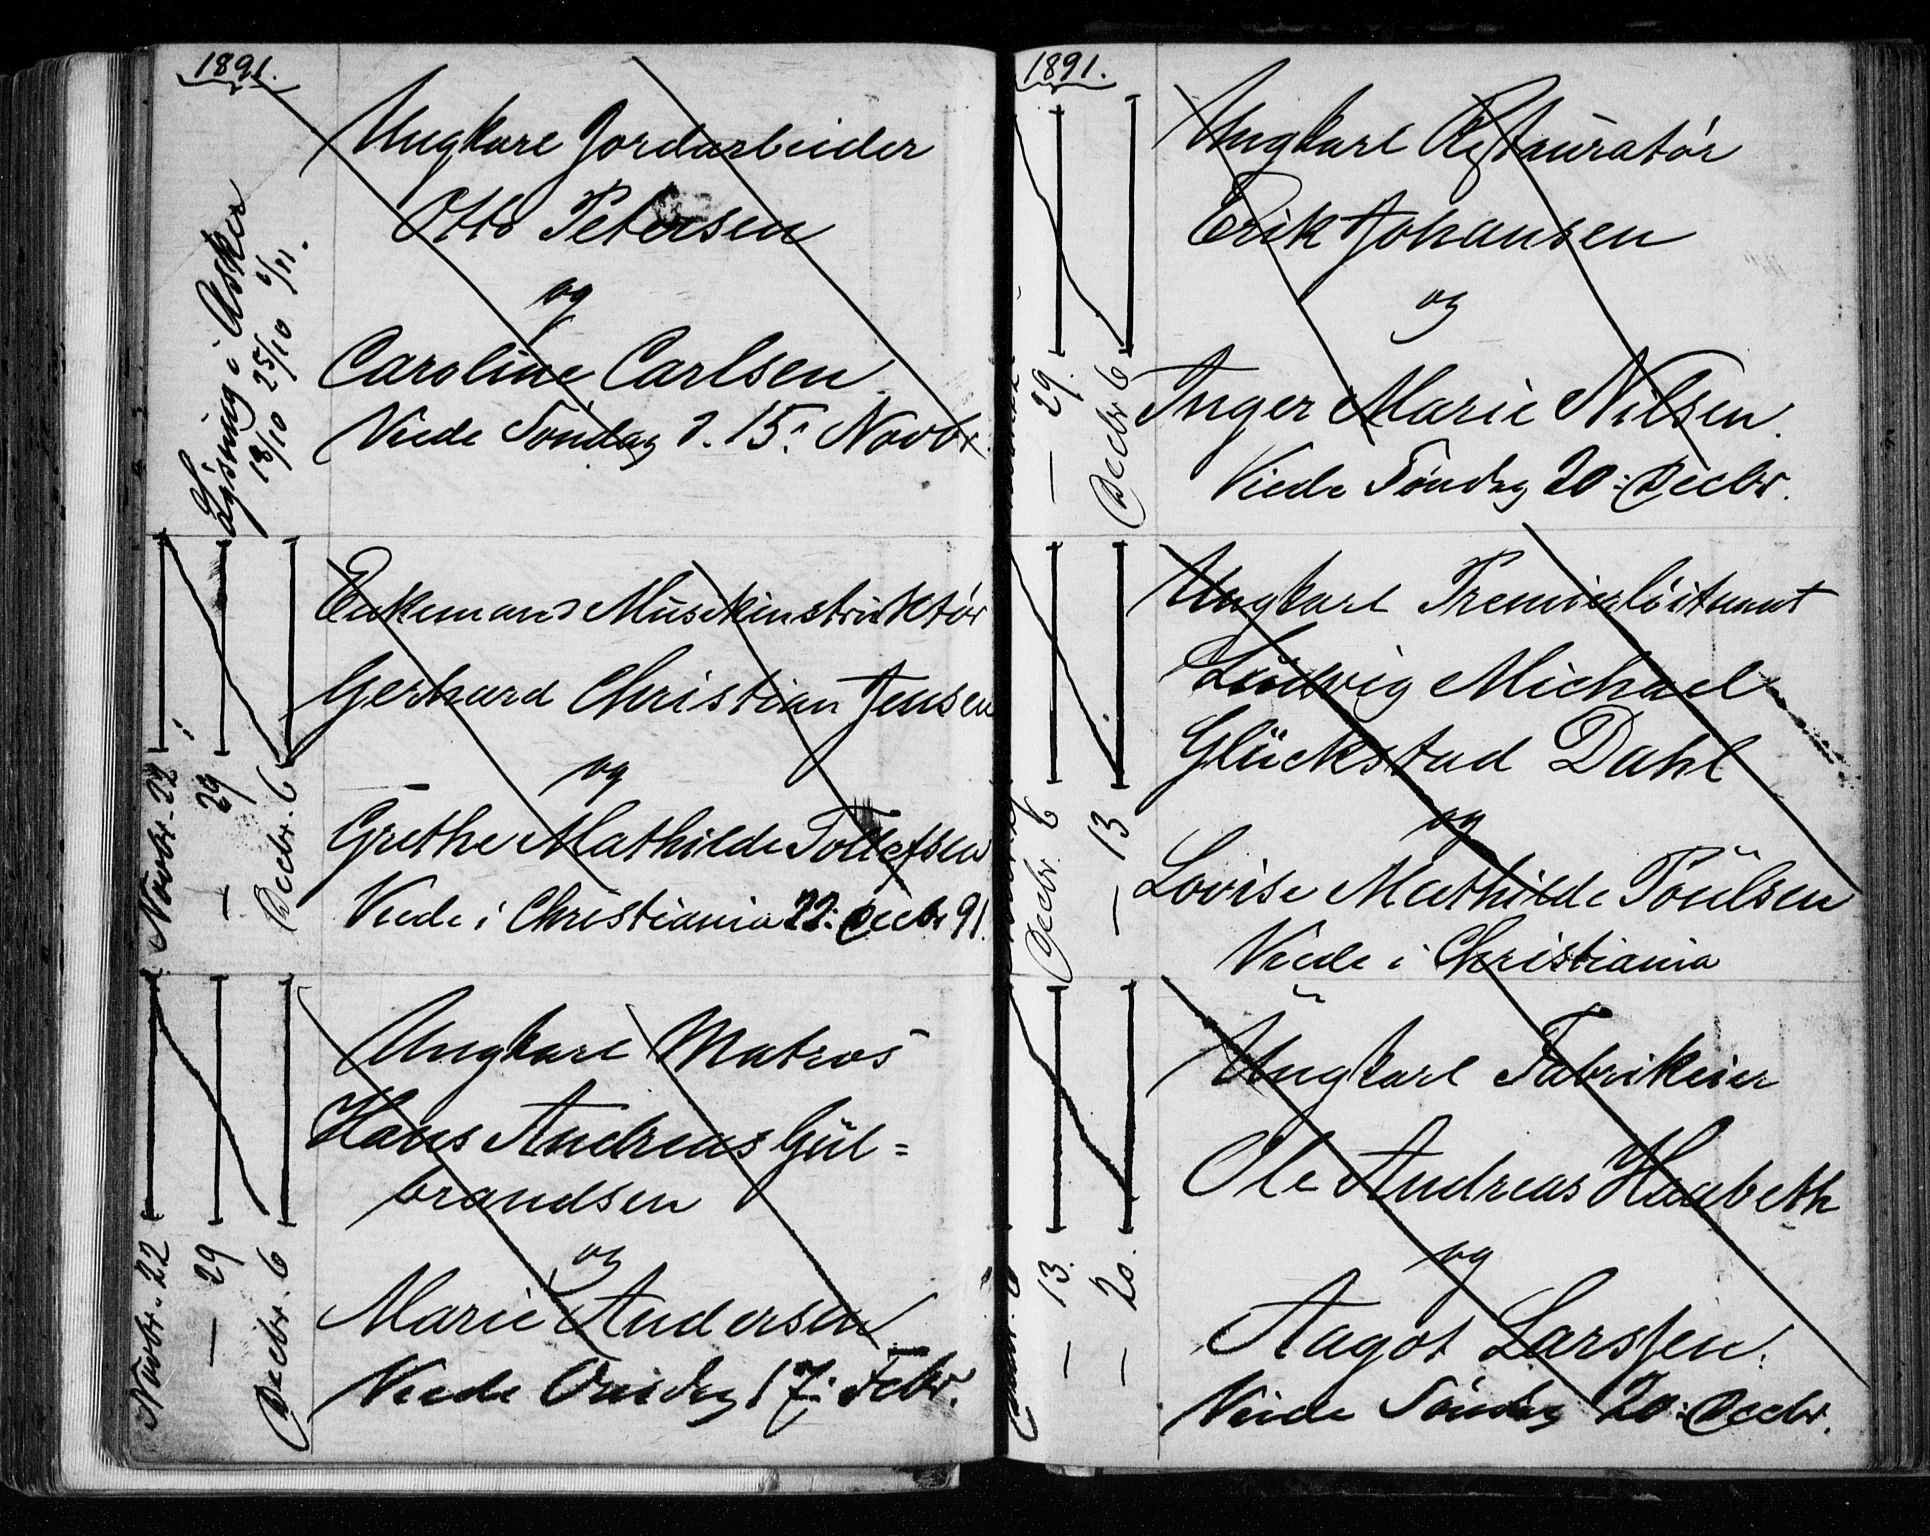 1891.
Lysning i Asker
18/10 25/10 1/11.
Ungkarl Jordarbeider
Otto Petersen
og
Caroline Carlsen
Viede Söndag d. 15: Novbr.
Novbr. 22
— 29
Decbr. 6
Enkemand Musikinstruktör
Gerhard Christian Jensen
og
Grethe Mathilde Tollefsen
Viede i Christiania 22: Decbr 91.
Novbr. 22
— 29
Decbr. 6
Ungkarl Matros
Hans Andreas Gul=
brandsen
og
Marie Andersen
Viede Onsdag 17: Febr.
1891.
— 29.
Decbr 6
Ungkarl Restauratör
Erik Johansen
og
Inger Marie Nilsen.
Viede Söndag 20: Decbr.
Decbr. 6
— 13
Ungkarl Premierlöitnant
Ludvig Michael
Glückstad Dahl
og
Lovise Mathilde Poulsen
Viede i Christiania
— 13.
— 20.
Ungkarl Fabrikeier
Ole Andreas Haabeth
og
Aagot Larssen.
Viede Söndag 20: Decbr.